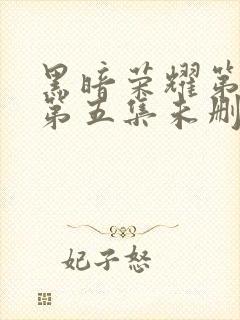 黑暗荣耀第
第五集未删
妃子怒